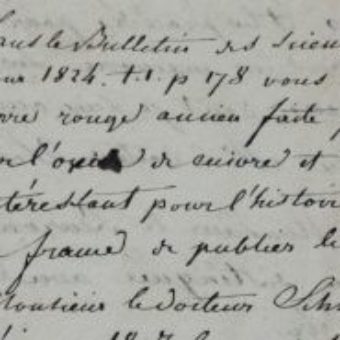 dans le Bulletin des Scien
1824. t.1. p 178 vous
rouge ancien faite
l'oxide de cuivre et
téressant pour l'histoi
de publier le
Monsieur le docteur Sch